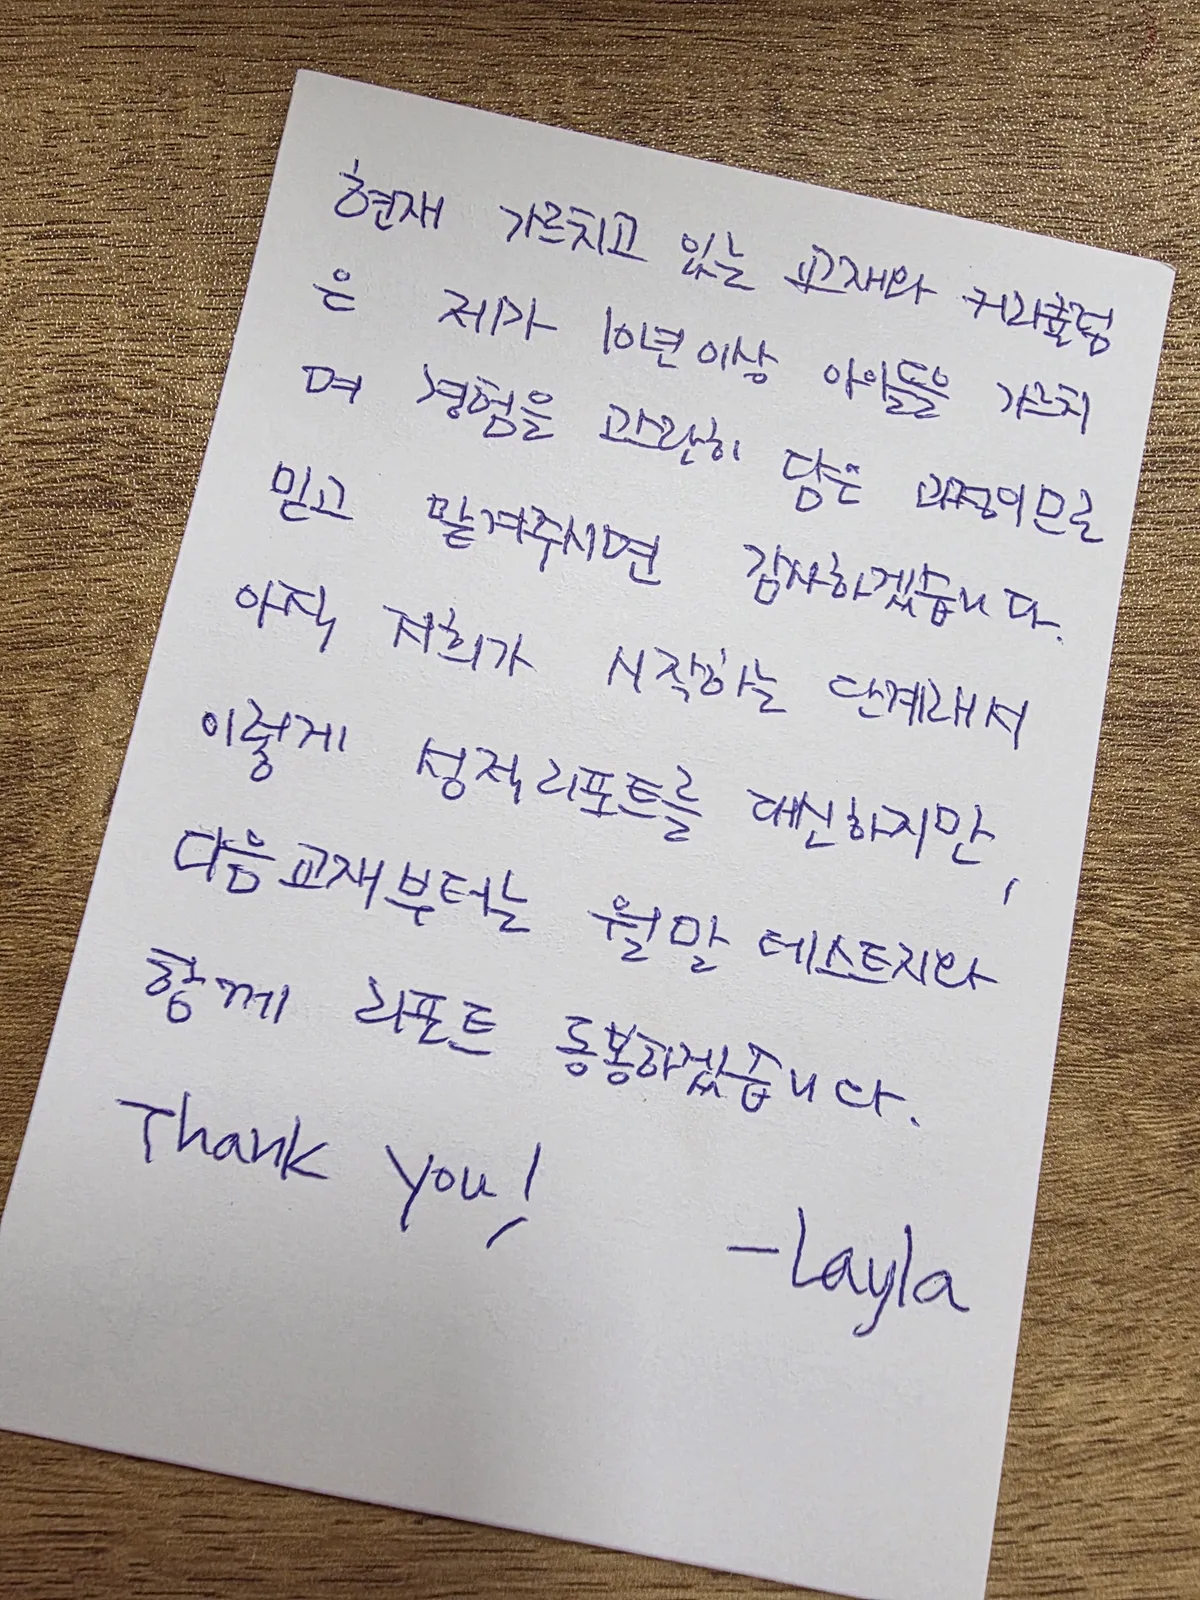 현재 가르치고 있는 교재와 커리큘럼
은 제가 10년이상 아이들을 가르치
며 경험을 과란히 담은 과정이므로
믿고 맡겨주시면 감사하겠습니다.
아직 저희가 시작하는 단계래서
이렇게 성적리포트를 대신하지만,
다음교재부터는 월말 테스트지와
함께 리포트 동봉하겠습니다.
Thank you!
-Layla